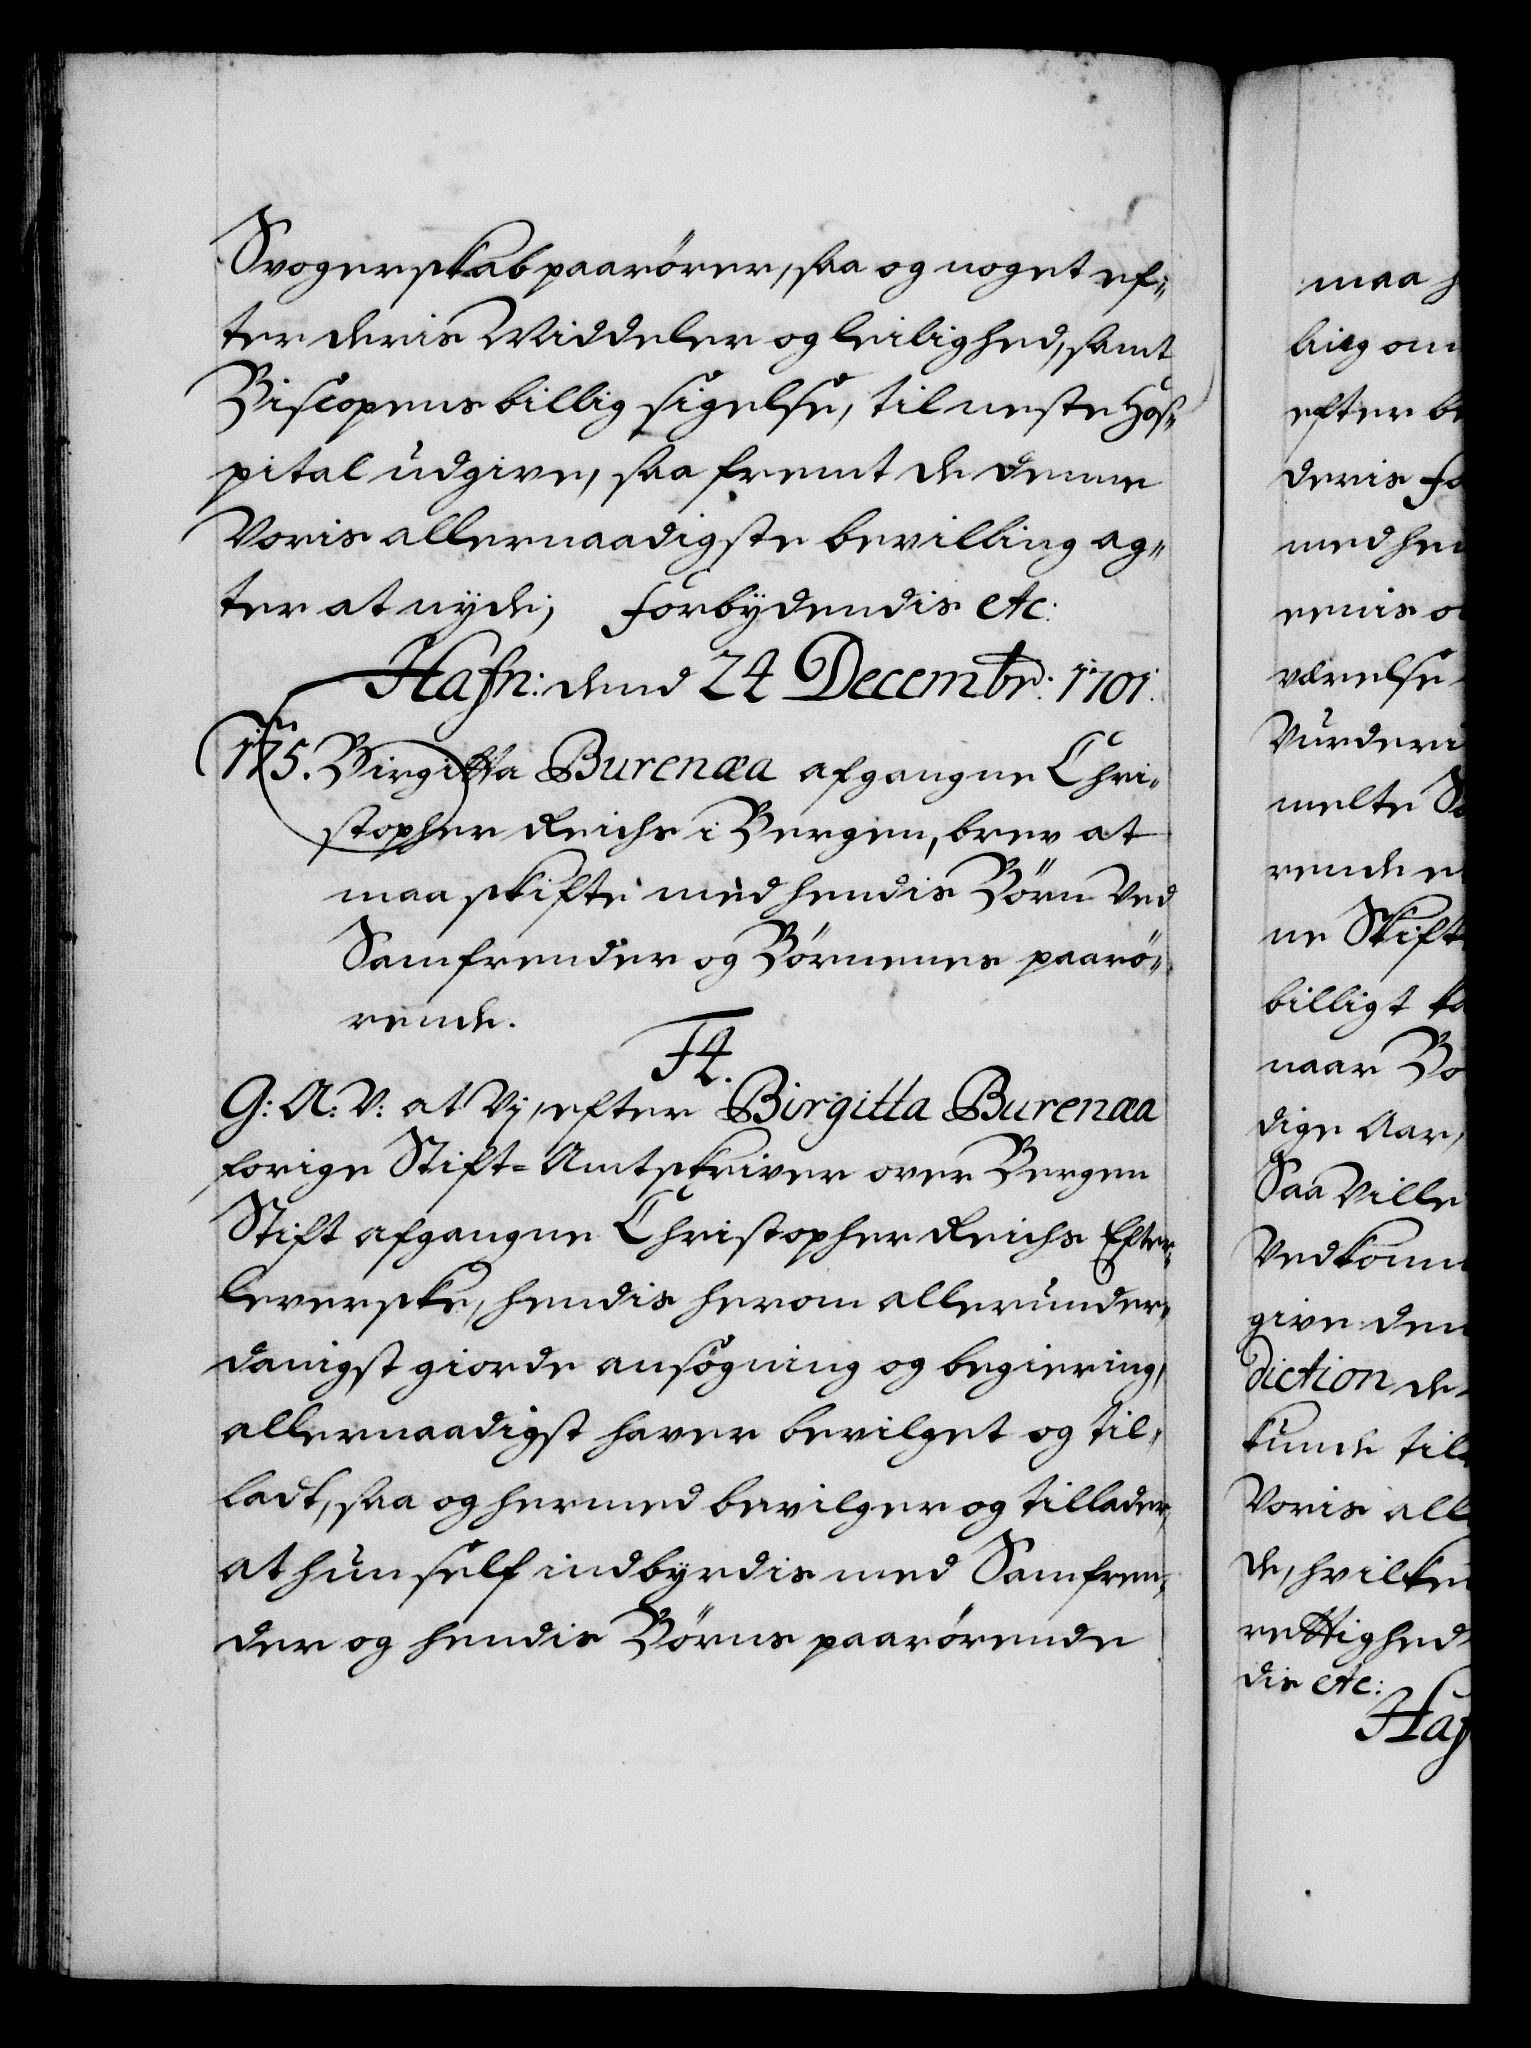 Svogerskab paarörer, saa og noget ef-
ter deris Middeler og leilighed, samt
Biscopens billig sigelse, til neste Hos-
pital udgive, saa fremt de denne
Voris allernaadigste bevilling ag-
ter at nyde; forbydendis etc:
Hafn: dend 24 Decembr: 1701.
175. Birgitta Burenæa afgangne Chri-
stopher Reichs i Bergen, brev at
maa skifte med hendis Börn Ved
Samfrender og Börnenes paarö-
rende.
F4.
G: A: V: at Vj, efter Birgitta Burenæa
forige Stift-Amtskriver over Bergen
Stift afgangne Christopher Reichs Efter-
leverske, hendis herom allerunder-
danigst giorde ansögning og begiering,
allernaadigst haver bevilget og til-
ladt, saa og hermed bevilger og tillader,
at hun self indbyrdis med Samfren-
der og hendis Börns paarörende
maa
ling om
efter be
deris fo
med hen
eenis o
værelse
Vurderi
melte S
rende e
ne Skift
billigt ka
naar Bo
dige Aar,
Saa Ville
Vedkomm
give den
diction de
kunde til
Voris all
de, hvilken
rettighed
dis etc:
Haf